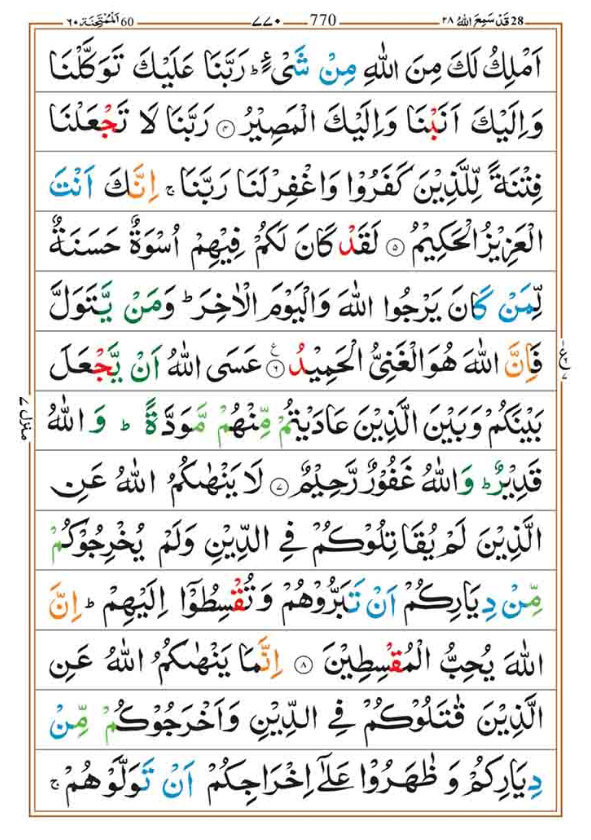 28 قَدْ سَمِعَ اللهُ ٢٨ 770 ٧٧٠ 60 اَلْمُمْتَحِنَة ٦٠
اَمْلِكُ لَكَ مِنَ اللهِ مِنْ شَیْءٍ ؕ رَبَّنَا عَلَیْكَ تَوَكَّلْنَا
وَاِلَیْكَ اَنَبْنَا وَاِلَیْكَ الْمَصِیْرُ ۝۴ رَبَّنَا لَا تَجْعَلْنَا
فِتْنَةً لِّلَّذِیْنَ كَفَرُوْا وَاغْفِرْ لَنَا رَبَّنَا ۚ اِنَّكَ اَنْتَ
الْعَزِیْزُ الْحَكِیْمُ ۝۵ لَقَدْ كَانَ لَكُمْ فِیْهِمْ اُسْوَةٌ حَسَنَةٌ
لِّمَنْ كَانَ یَرْجُوا اللهَ وَالْیَوْمَ الْاٰخِرَ ؕ وَمَنْ یَّتَوَلَّ
فَاِنَّ اللهَ هُوَ الْغَنِیُّ الْحَمِیْدُ ۝۶ ع عَسَی اللهُ اَنْ یَّجْعَلَ
بَیْنَكُمْ وَبَیْنَ الَّذِیْنَ عَادَیْتُمْ مِّنْهُمْ مَّوَدَّةً ؕ وَ اللهُ
قَدِیْرٌ ؕ وَاللهُ غَفُوْرٌ رَّحِیْمٌ ۝۷ لَا یَنْهٰىكُمُ اللهُ عَنِ
الَّذِیْنَ لَمْ یُقَاتِلُوْكُمْ فِی الدِّیْنِ وَلَمْ یُخْرِجُوْكُمْ
مِّنْ دِیَارِكُمْ اَنْ تَبَرُّوْهُمْ وَتُقْسِطُوْۤا اِلَیْهِمْ ؕ اِنَّ
اللهَ یُحِبُّ الْمُقْسِطِیْنَ ۝۸ اِنَّمَا یَنْهٰىكُمُ اللهُ عَنِ
الَّذِیْنَ قٰتَلُوْكُمْ فِی الدِّیْنِ وَاَخْرَجُوْكُمْ مِّنْ
دِیَارِكُمْ وَ ظٰهَرُوْا عَلٰۤی اِخْرَاجِكُمْ اَنْ تَوَلَّوْهُمْ ۚ
منزل ٧